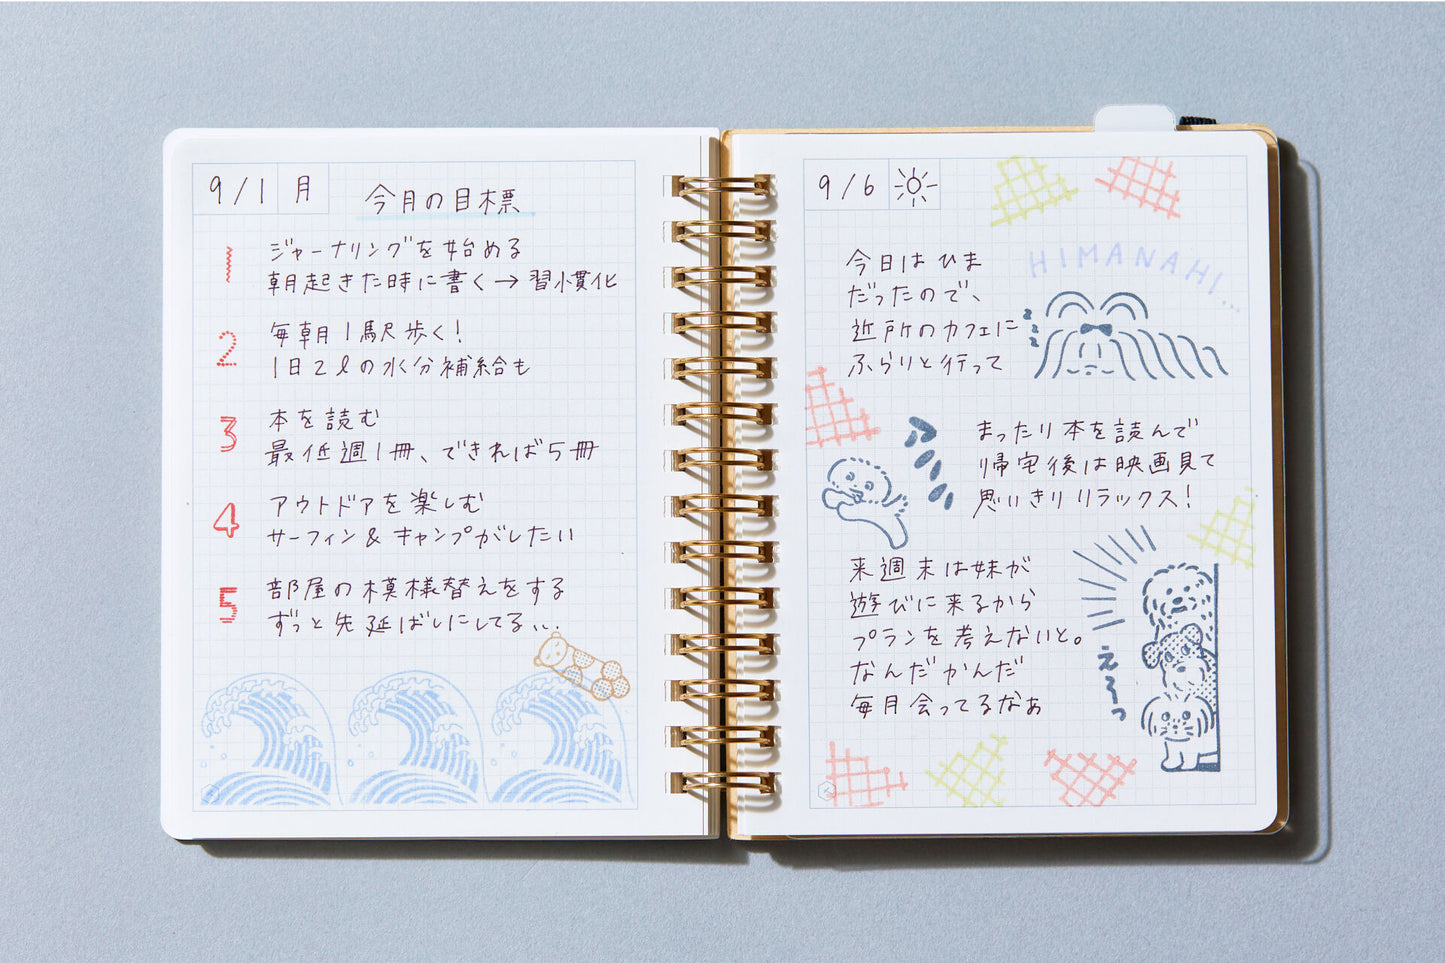 9/1 月
今月の目標
1
ジャーナリングを始める
朝起きた時に書く→習慣化
2
毎朝1駅歩く!
1日2ℓの水分補給も
3
本を読む
最低週1冊、できれば5冊
4
アウトドアを楽しむ
サーフィン&キャンプがしたい
5
部屋の模様替えをする
ずっと先延ばしにしてる、、、
9/6
HIMANAHI...
今日はひま
だったので、
近所のカフェに
ふらりと行って
zzz
まったり本を読んで
帰宅後は映画見て
思いきりリラックス!
来週末は妹が
遊びに来るから
プランを考えないと。
なんだかんだ
毎月会ってるなぁ
えーっ